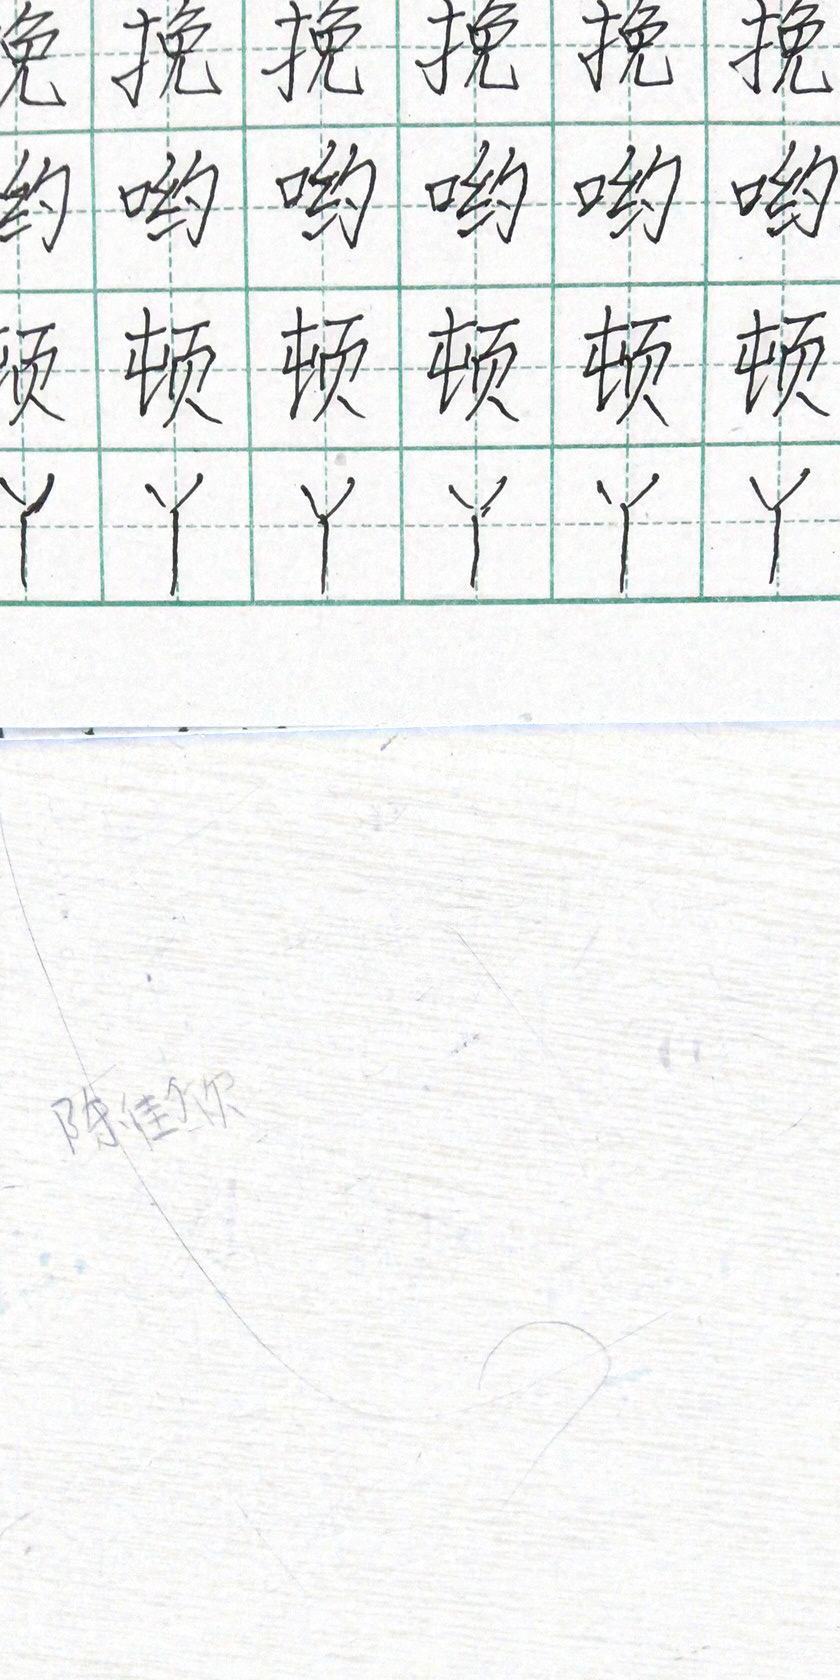 挽挽挽挽挽挽
哟哟哟哟哟哟
顿顿顿顿顿顿
丫丫丫丫丫丫
陈佳